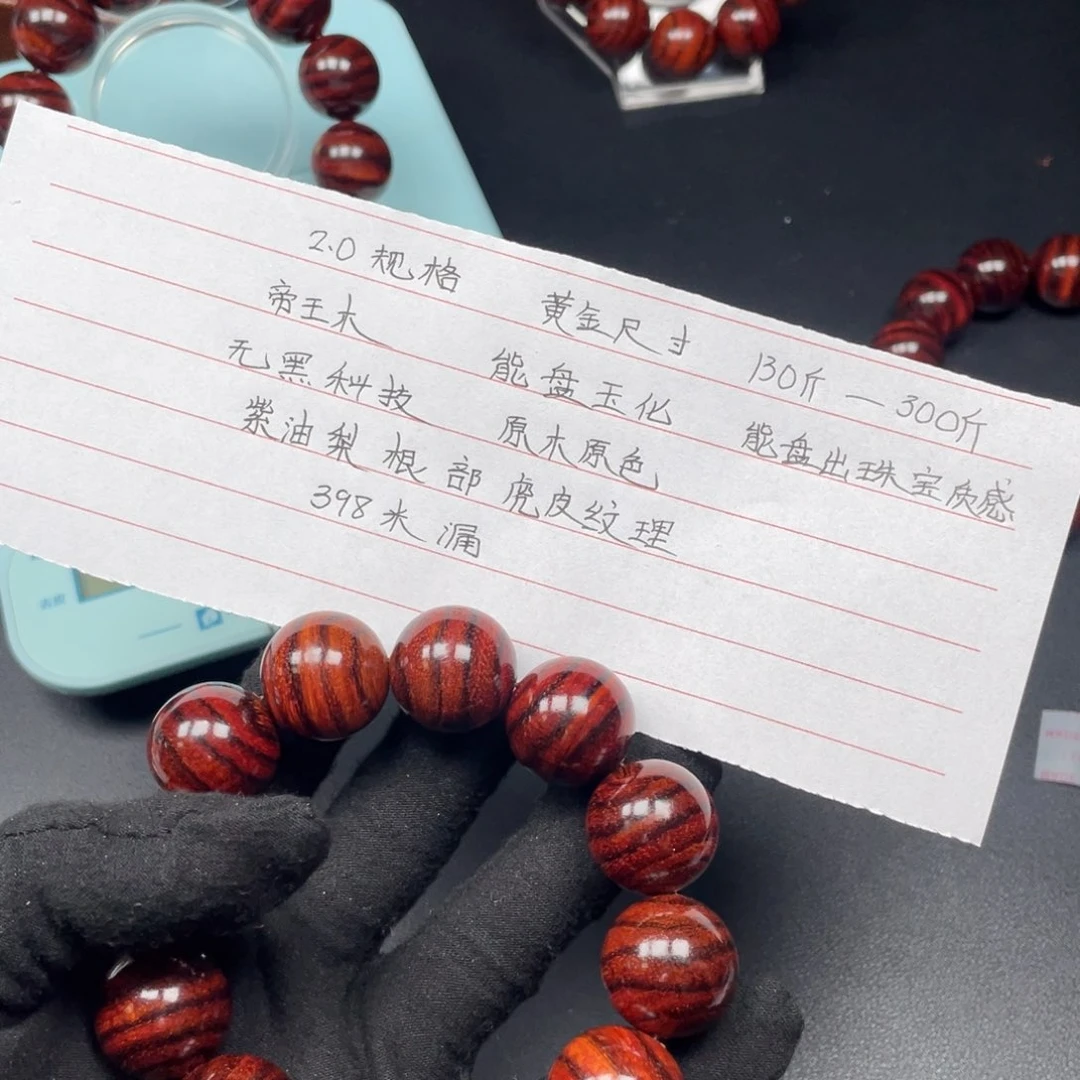 2.0规格 黄金尺寸 130斤—300斤
帝王木 能盘玉化 能盘出珠宝质感
无黑科技 原木原色
紫油梨根部虎皮纹理
398水漏